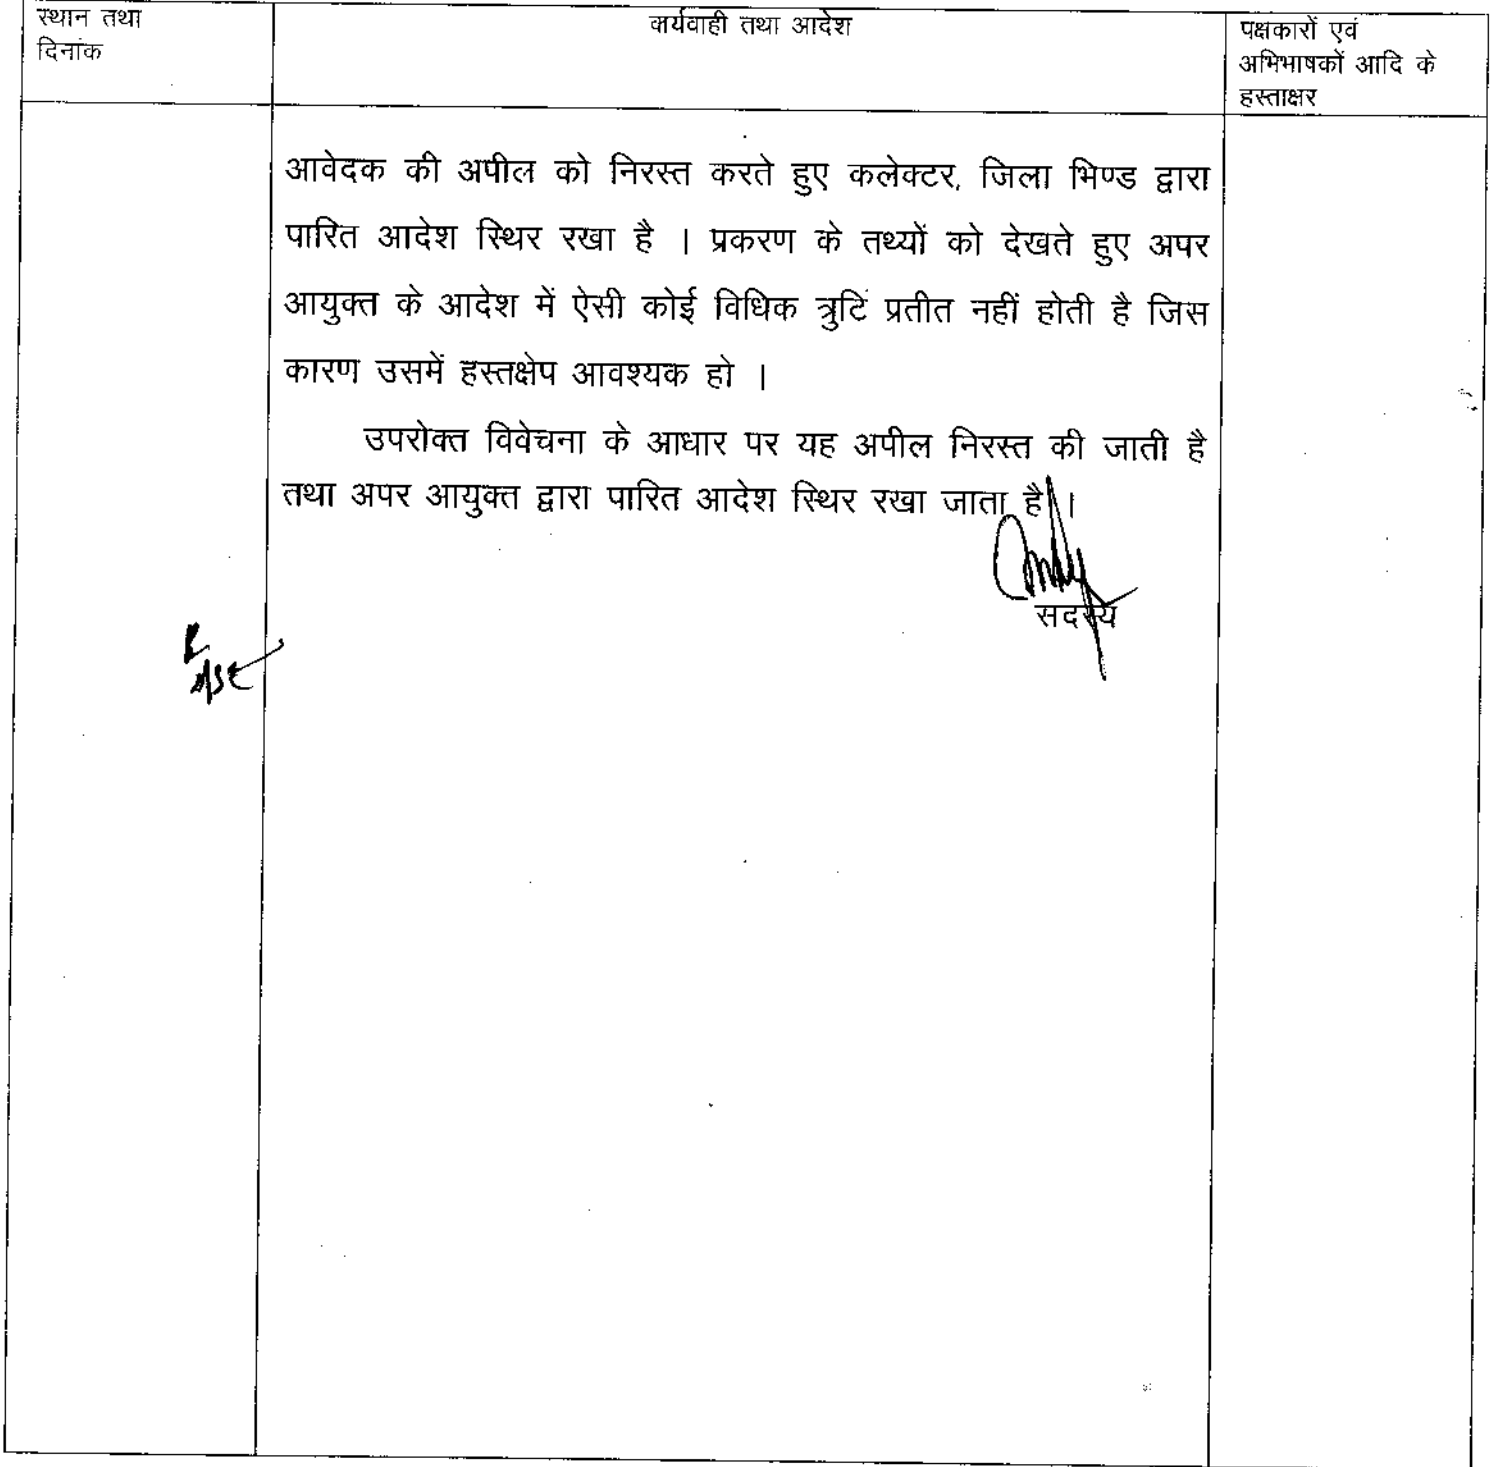 स्थान तथा
दिनांक
कार्यवाही तथा आदेश
पक्षकारों एवं
अभिभाषकों आदि के
हस्ताक्षर
आवेदक की अपील को निरस्त करते हुए कलेक्टर, जिला भिण्ड द्वारा
पारित आदेश स्थिर रखा है ।  प्रकरण के तथ्यों को देखते हुए अपर
आयुक्त के आदेश में ऐसी कोई विधिक त्रुटि प्रतीत नहीं होती है जिस
कारण उसमें हस्तक्षेप आवश्यक हो ।
उपरोक्त विवेचना के आधार पर यह अपील निरस्त की जाती है
तथा अपर आयुक्त द्वारा पारित आदेश स्थिर रखा जाता है ।
सदस्य